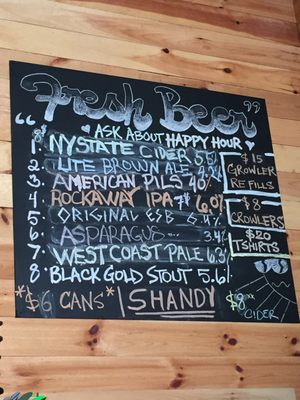 "Fresh Beer"
ASK ABOUT HAPPY HOUR
1. NY STATE CIDER 5.8%
2. LITE BROWN ALE 4.2%
3. AMERICAN PILS
4. ROCKAWAY IPA 7% 6.0%
5. ORIGINAL ESB
6. ASPARAGUS 3.4%
7. WEST COAST PALE 6.3
8. BLACK GOLD STOUT 5.6%
*$6 CANS* | SHANDY
$15
GROWLER
REFILLS
$8
CROWLERS
$20
TSHIRTS
$8
CIDER